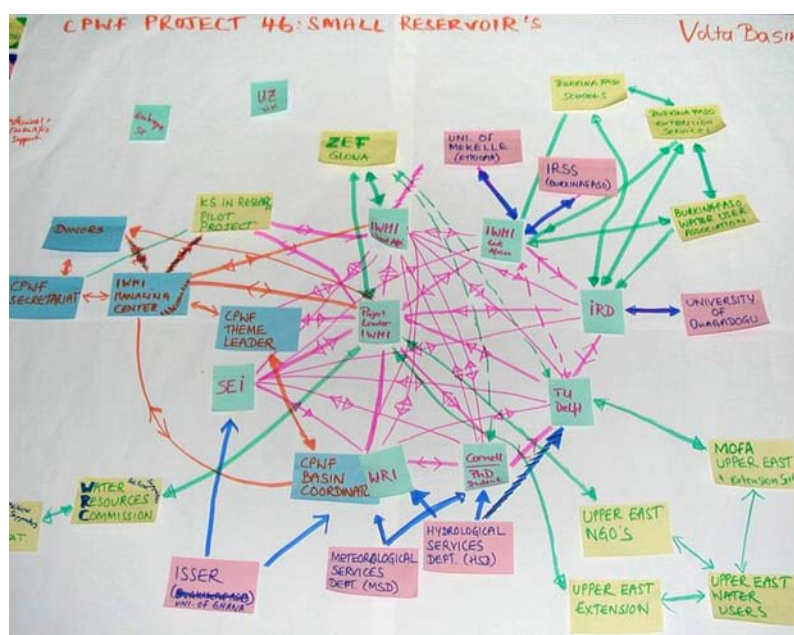 CPWF PROJECT 46: SMALL RESERVOIR'S
Volta Basin
UZ
ZEF
GLOWA
UNI. OF
MEKELLE
(ETHIOPIA)
IRSS
(BURKINAFASO)
BURKINAFASO
SCHOOLS
BURKINAFASO
EXTENSION
SERVICES
BURKINAFASO
WATER USER
ASSOCIATION
DONORS
KS IN RESEAR
PILOT
PROJECT
IWMI
IWMI
East
Africa
CPWF
SECRETARIAT
IWMI
MANAGING
CENTER
CPWF
THEME
LEADER
Project
Leader
IWMI
IRD
UNIVERSITY
OF
OUAGADOGU
SEI
TU
Delft
CPWF
BASIN
COORDINAR
WRI
Cornell
PhD
Student
MOFA
UPPER EAST
WATER
RESOURCES
COMMISSION
AT.
HYDROLOGICAL
SERVICES
DEPT. (HSD)
METEOROLOGICAL
SERVICES
DEPT. (MSD)
ISSER
UNI. OF GHANA
UPPER EAST
NGO'S
UPPER EAST
EXTENSION
UPPER EAST
WATER
USERS